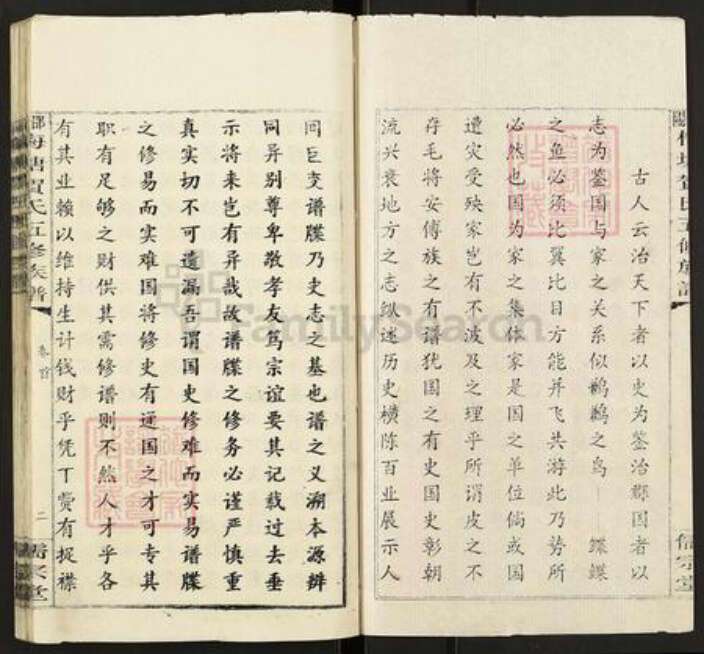 古人云治天下者以史为鉴治郡国者以
志为鉴国与家之关系似鹣鹣之鸟——鲽鲽
之鱼必须比翼比目方能并飞共游此乃势所
必然也国为家之集体家是国之单位倘或国
遭灾受殃家岂有不波及之理乎所谓皮之不
存毛将安傅族之有谱犹国之有史国史彰朝
流兴衰地方之志纵述历史横陈百业展示人
同巨变谱牒乃史志之基也谱之义溯本源辨
同异别尊卑敬孝友笃宗谊要其记载过去垂
示将来岂有异哉故谱牒之修务必谨严慎重
真实切不可遗漏吾谓国史修难而实易谱牒
之修易而实难国将修史有通国之才可专其
职有足够之财供其需修谱则不然人才乎各
有其业赖以维持生计钱财乎凭丁费有捉襟
梅塘贺氏五修族谱
卷首
二
FamilySearch